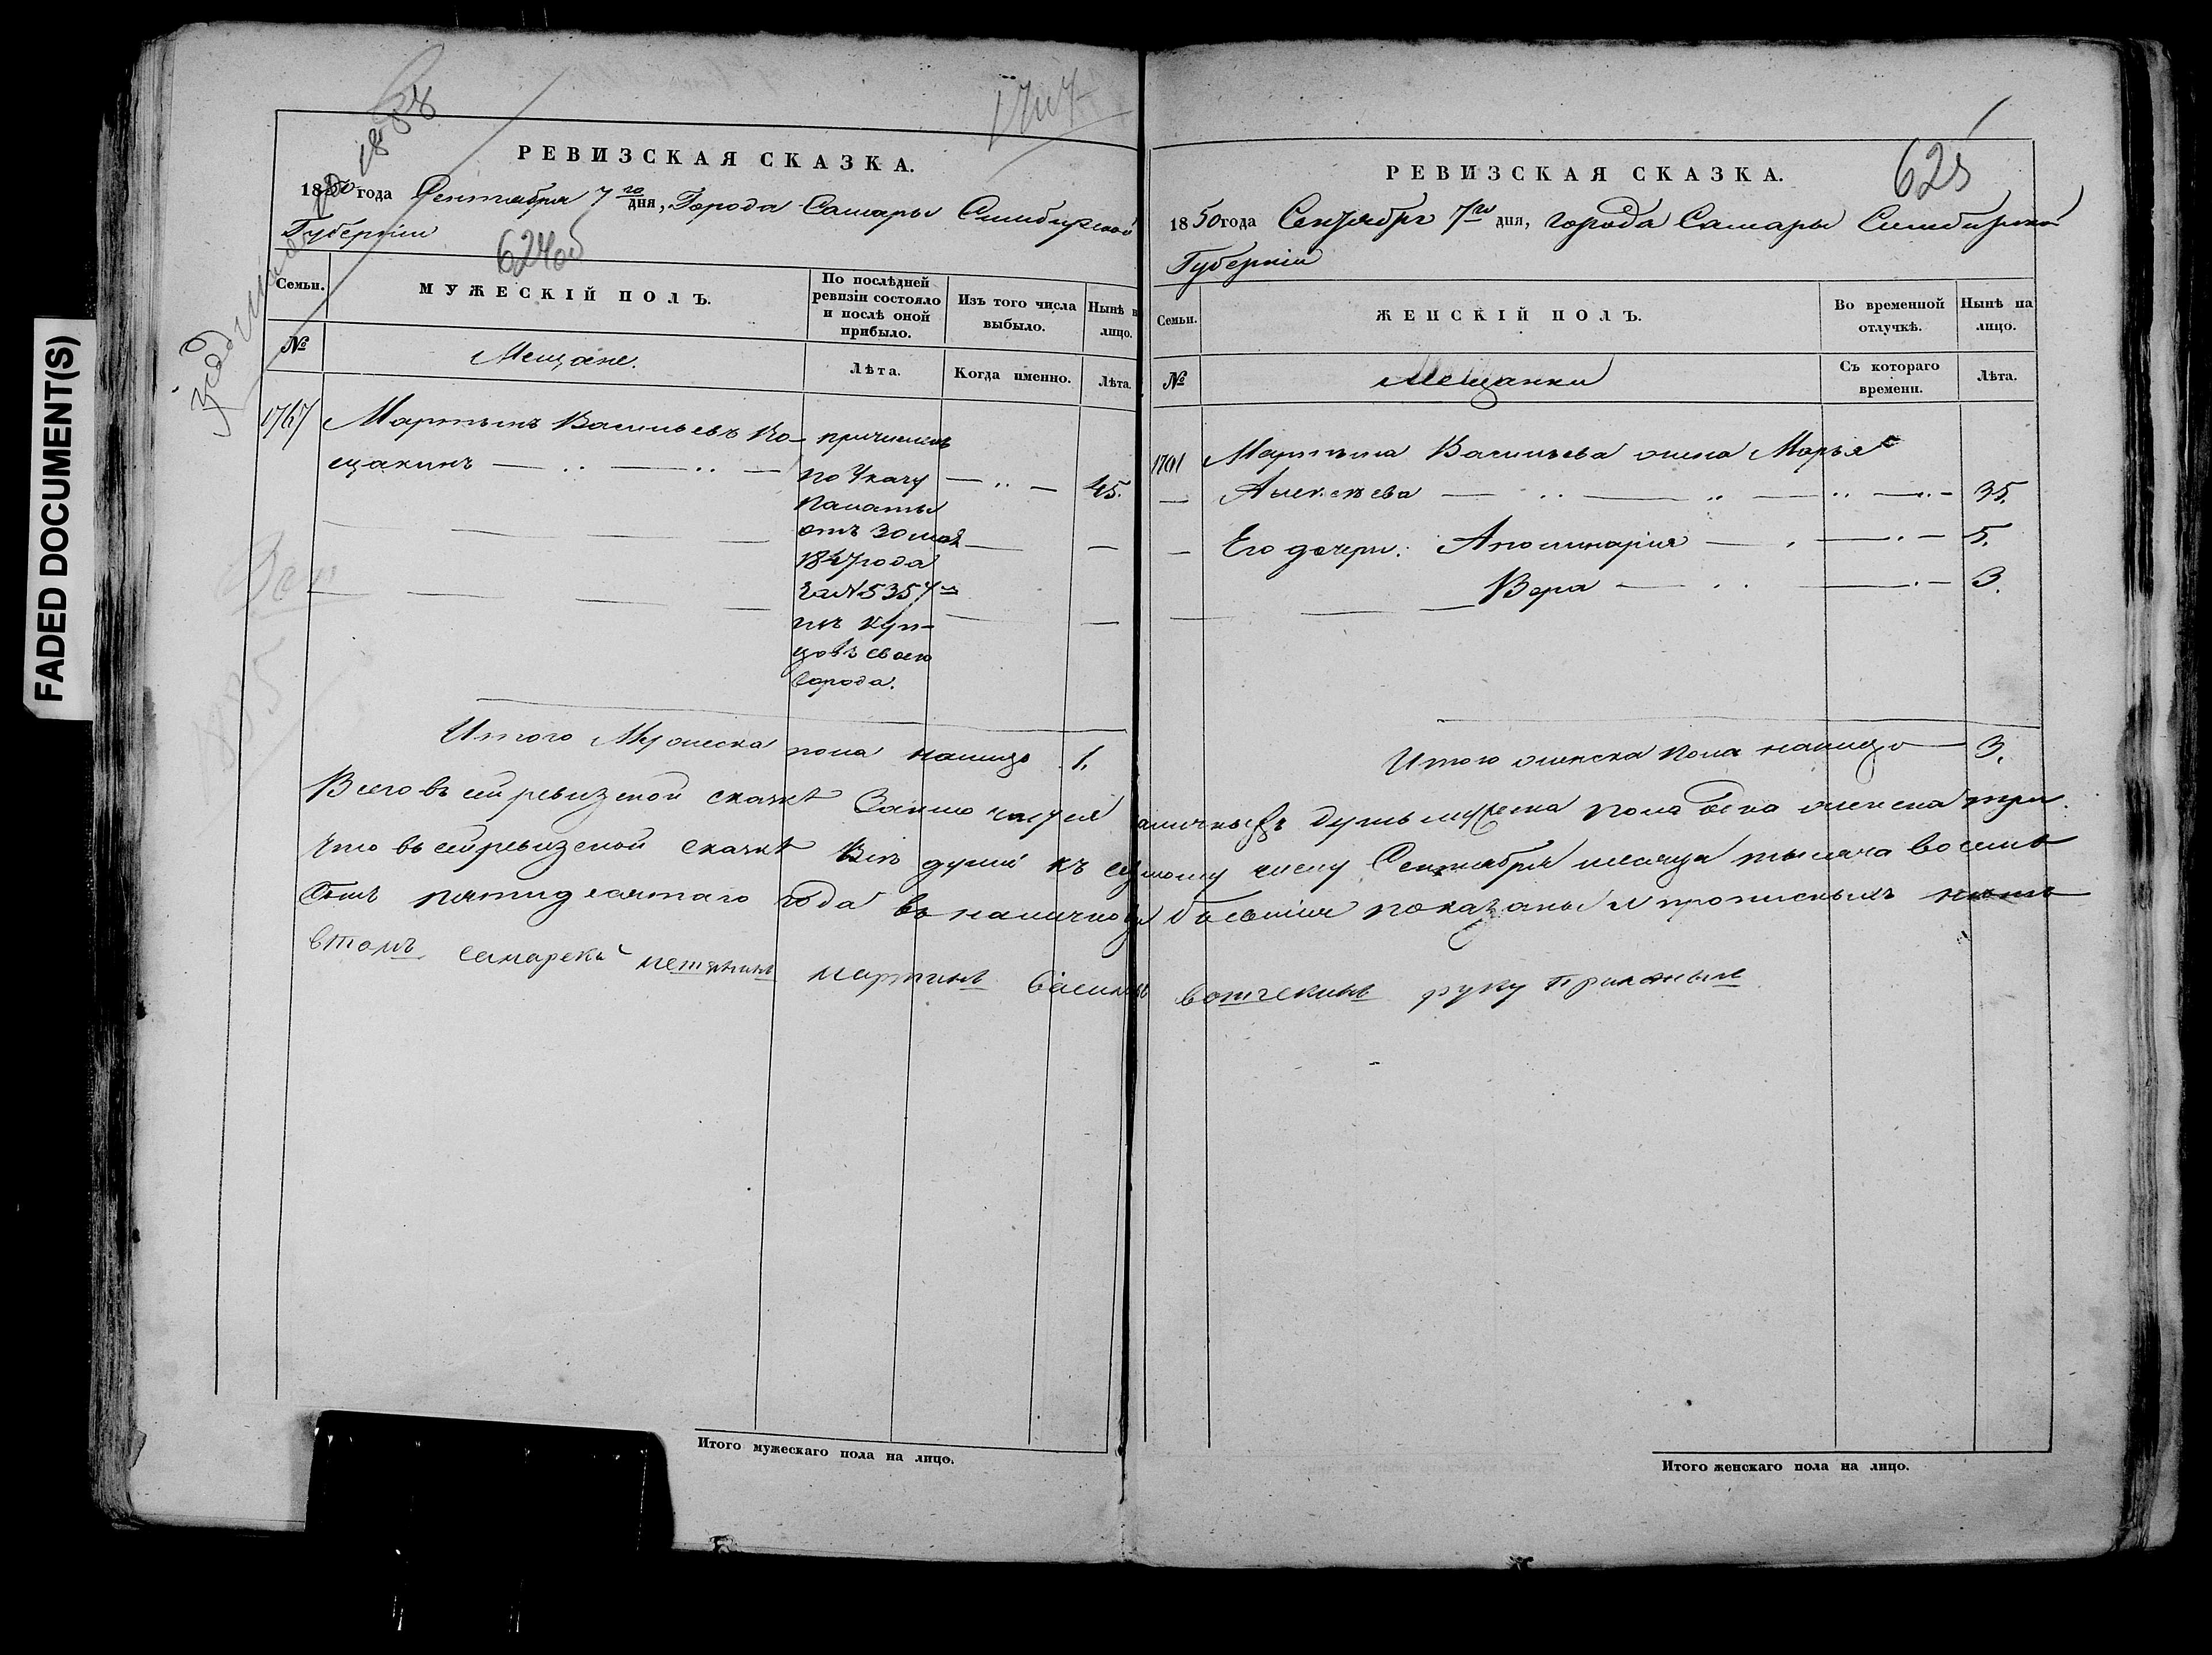 FADED DOCUMENT(S)
РЕВИЗСКАЯ СКАЗКА.
1850 года Сентября 7го дня, Города Самары Симбирской
Губернии
624об
Семьи.
МУЖЕСКІЙ ПОЛЪ.
По послѣдней ревизіи состояло и послѣ оной прибыло.
Изъ того числа выбыло.
Нынѣ н лицо.
№
Мещане.
Лѣта.
Когда именно.
Лѣта.
Мартынъ Васильевъ
причисленъ
по Указу
45.
Палаты
отъ 30 мая
1847 года
за № 5357
изъ куп-
цовъ своего
города.
Итого Мужеска пола налицо 1.
РЕВИЗСКАЯ СКАЗКА.
625
1850 года Сентября 7го дня, города Самары Симбирской
Губернии
Семьи.
ЖЕНСКІЙ ПОЛЪ.
Во временной отлучкѣ.
Нынѣ на лицо.
№
Мещанки
Съ котораго времени.
Лѣта.
Мартына Васильева жена Марья
Алексѣева 35.
Его дочери: Аполинария 5.
Вера 3.
Итого женска пола налицо 3.
Всего въ сей ревизской сказкѣ Заключается наличныхъ душъ мужеска пола одна женска три.
Что въ сей ревизской сказкѣ всѣ души къ седьмому числу Сентября месяца тысяча восемь
сотъ пятидесятаго года въ наличности бывшия показаны и прописныхъ нѣтъ
втомъ самарской мещанинъ мартинъ васильевъ руку приложилъ
Итого мужескаго пола на лицо.
Итого женскаго пола на лицо.